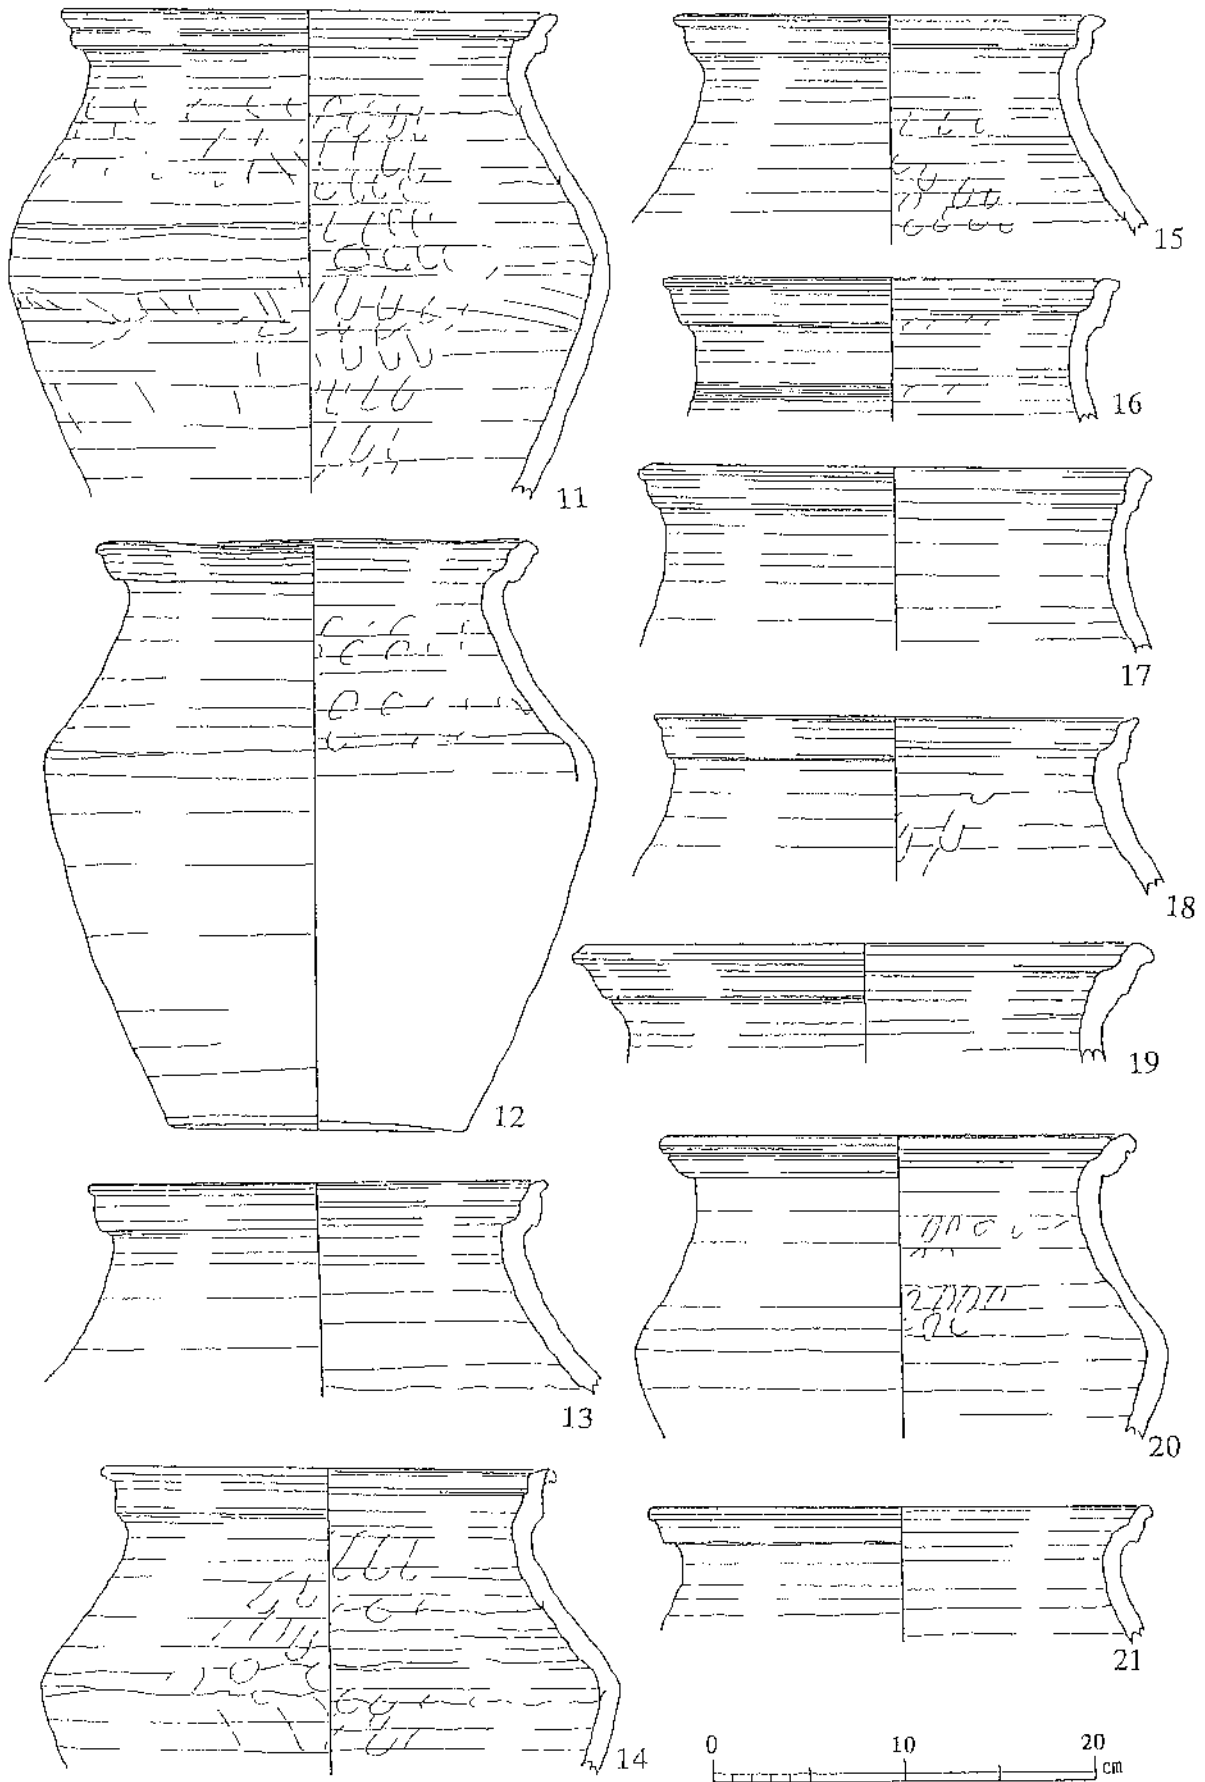 11
12
13
14
15
16
17
18
19
20
21
0 10 20
cm